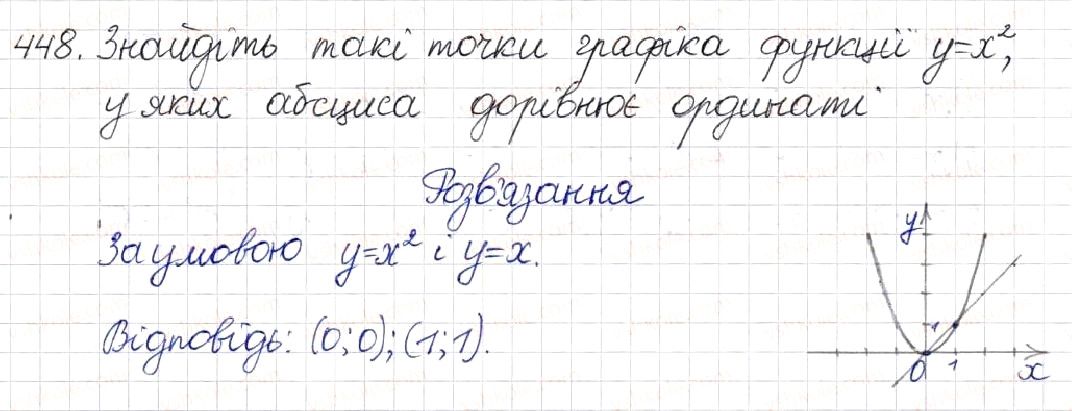 448. Знайдіть такі точки графіка функції y=x²,
у яких абсциса дорівнює ординаті
Розв'язання
За умовою y=x² і y=x.
Відповідь: (0;0);(1;1).
y
1
0 1 x